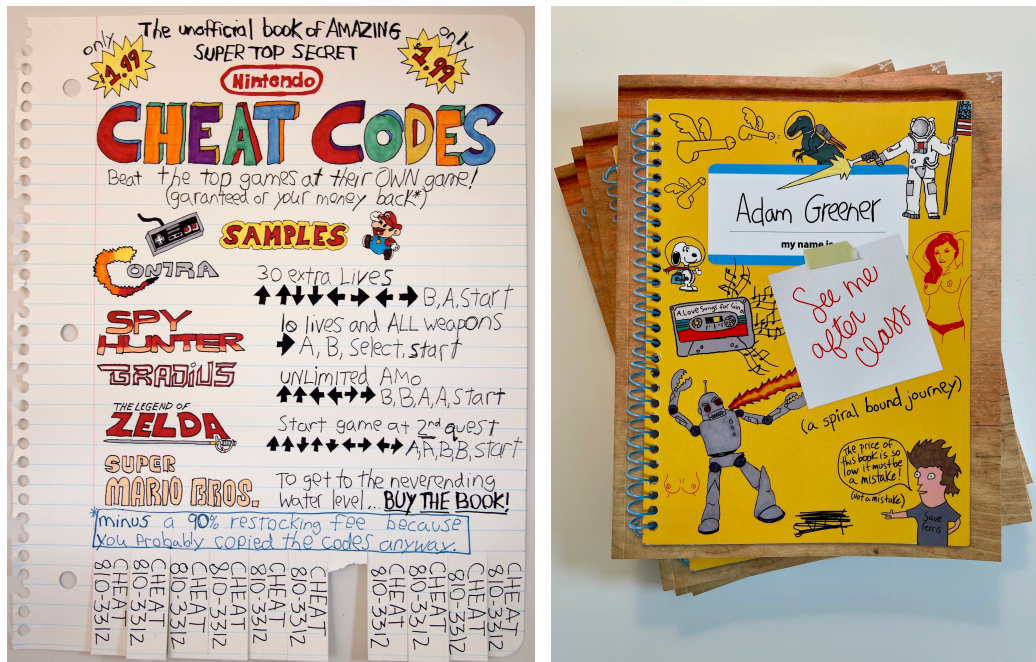 The unofficial book of AMAZING
SUPER TOP SECRET
only
$1.99
only
$1.99
Nintendo
CHEAT CODES
Beat the top games at their OWN game!
(garanteed or your money back*)
SAMPLES
CONTRA
30 extra Lives
↑↑↓↓←→←→B,A,Start
SPY
HUNTER
10 lives and ALL weapons
→ A, B, Select, start
GRADIUS
UNLIMITED AMO
↑↑↓↓←→←→B,B,A,A,Start
THE LEGEND OF
ZELDA
Start game at 2nd quest
A,A,B,B,start
SUPER
MARIO BROS.
To get to the neverending
water level... BUY THE BOOK!
*minus a 90% restocking fee because
you probably copied the codes anyway.
CHEAT
810-3312
CHEAT
810-3312
CHEAT
810-3312
CHEAT
810-3312
CHEAT
810-3312
CHEAT
810-3312
CHEAT
810-3312
CHEAT
810-3312
CHEAT
810-3312
CHEAT
810-3312
Adam Greener
my name is
See me
after
class
A Love Songs for Gin
(a spiral bound journey)
The price of
this book is so
low it must be
a mistake!
(not a mistake)
Save
Ferris